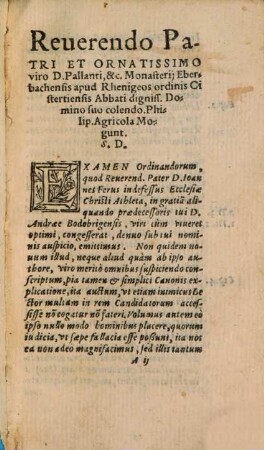 Reuerendo Pa-
TRI ET ORNATISSIMO
viro D. Pallanti, &c. Monasterij Eber-
bachensis apud Rhenigeos ordinis Ci
stertiensis Abbati digniss. Do-
mino suo colendo. Phi-
lip. Agricola Mo-
gunt.
S. D.
EXAMEN Ordinandorum,
quod Reuerend. Pater D. Ioan
nes Ferus indefessus Ecclesiæ
Christi Athleta, in gratiā ali-
quando prædecessoris tui D.
Andreæ Bodobrigensis, viri cùm viueret
optimi, congesserat, denuo sub tui nomi-
nis auspicio, emittimus. Non quidem no-
uum illud, neque aliud quàm ab ipso au-
thore, viro meritò omnibus suspiciendo con-
scriptum, pia tamen & simplici Canonis ex-
plicatione, ita auctum, vt etiam inimicus Le
ctor multam in rem Candidatorum acces-
sisse nō cogatur nō fateri. Volumus autem eo
ipso nullo modo hominibus placere, quorum
iudicia, vt sæpe fallacia esse possunt, ita nos
ea non adeo magnifacimus, sed illis tantum
A ij